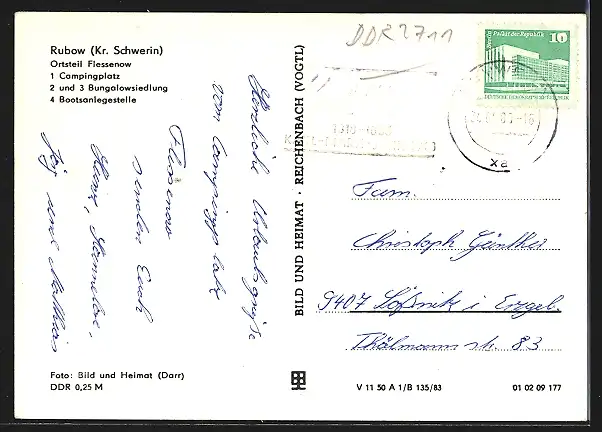 Rubow (Kr. Schwerin)
Ortsteil Flessenow
1 Campingplatz
2 und 3 Bungalowsiedlung
4 Bootsanlegestelle
Herzliche Urlaubsgrüße
vom Campingplatz
Flessenow
senden Euch
Heinz, Hannelore,
und Matthias
Foto: Bild und Heimat (Darr)
DDR 0,25 M
BILD UND HEIMAT · REICHENBACH (VOGTL)
DDR 2711
Palast der Republik
10
DEUTSCHE DEMOKRATISCHE REPUBLIK
xa
Fam.
Christoph Günther
9407 Lößnitz i. Erzgeb.
Thälmannstr. 83
V 11 50 A 1/B 135/83
01 02 09 177